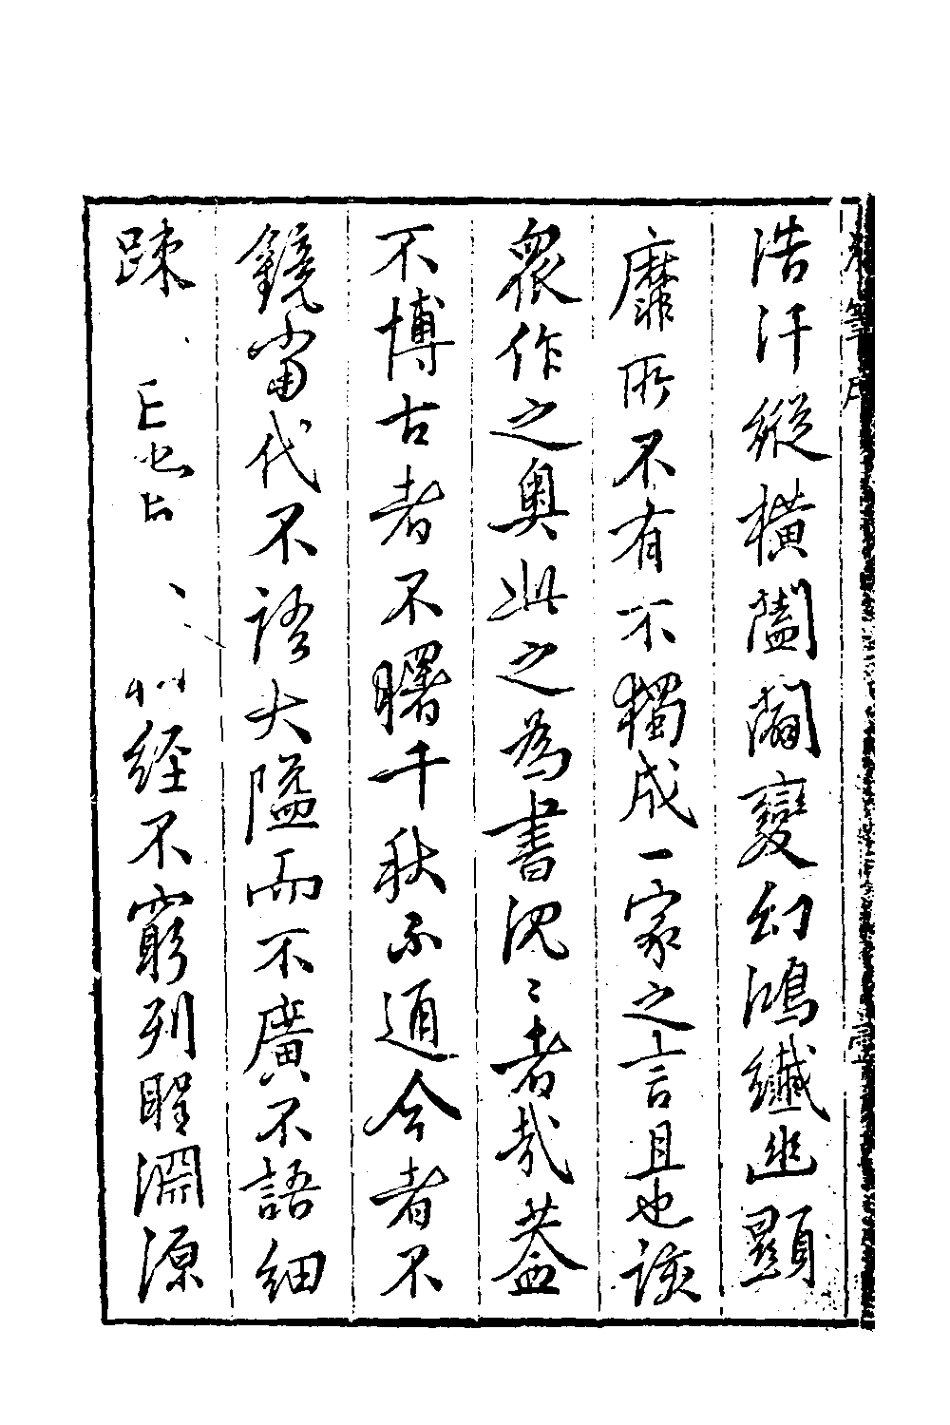 浩汗縱橫闔闢變幻鴻纖幽顯
靡所不有不獨成一家之言且也該
衆作之奧此之為書況〻者哉蓋
不博古者不曙千秋不通今者不
鏡當代不語大隘而不廣不語細
疎 經不窮列眶淵源